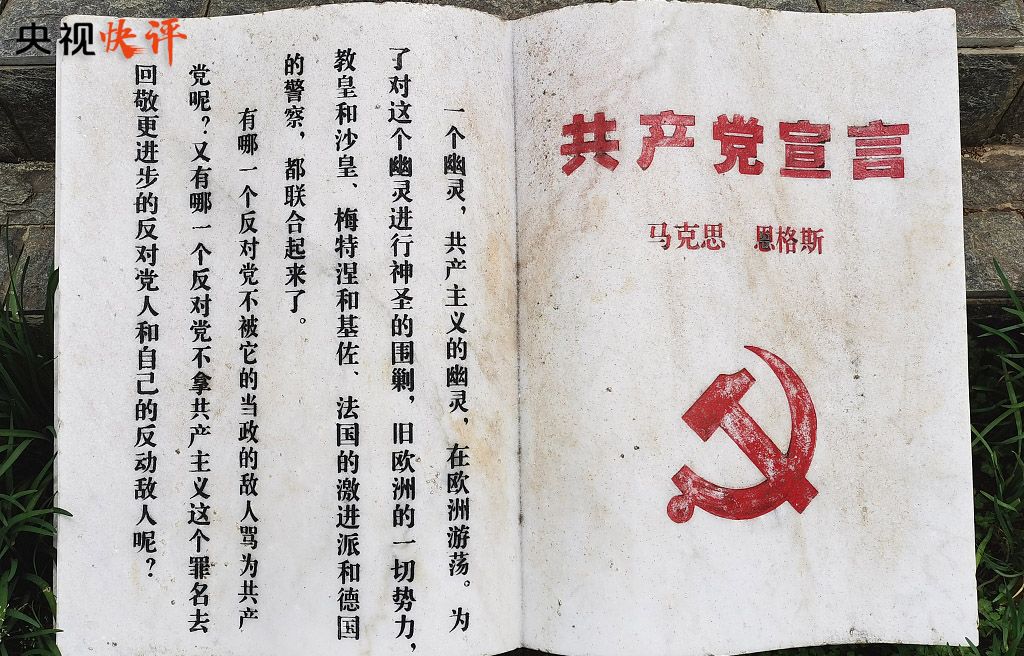 央视快评
共产党宣言
马克思 恩格斯
一个幽灵，共产主义的幽灵，在欧洲游荡。为
了对这个幽灵进行神圣的围剿，旧欧洲的一切势力，
教皇和沙皇、梅特涅和基佐、法国的激进派和德国
的警察，都联合起来了。
有哪一个反对党不被它的当政的敌人骂为共产
党呢？又有哪一个反对党不拿共产主义这个罪名去
回敬更进步的反对党人和自己的反动敌人呢？